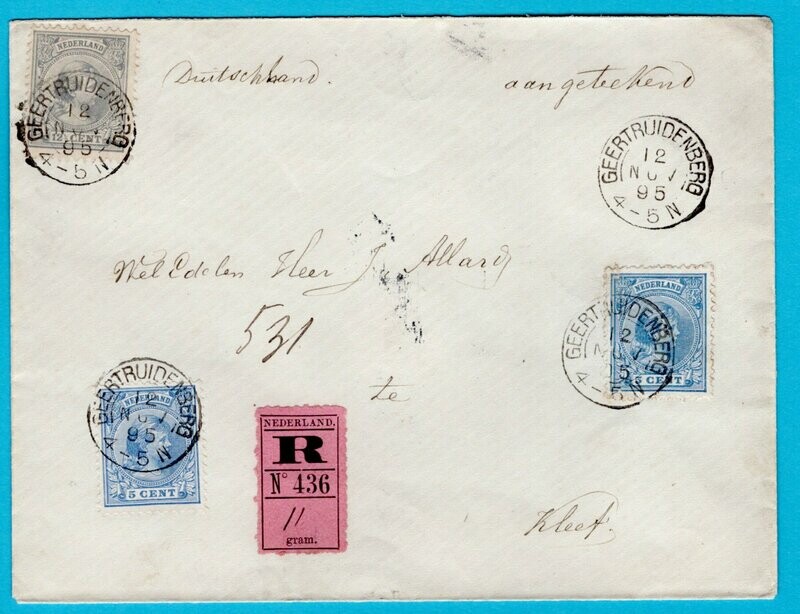 NEDERLAND
12½ CENT
GEERTRUIDENBERG
12
NOV
95
4-5 N
Duitschland.
aangeteekend
GEERTRUIDENBERG
12
NOV
95
4-5 N
Wel Edelen Heer J. Allard
531
NEDERLAND
5 CENT
GEERTRUIDENBERG
12
NOV
95
4-5 N
te
NEDERLAND
5 CENT
GEERTRUIDENBERG
12
NOV
95
4-5 N
NEDERLAND.
R
No 436
11
gram.
Kleef.